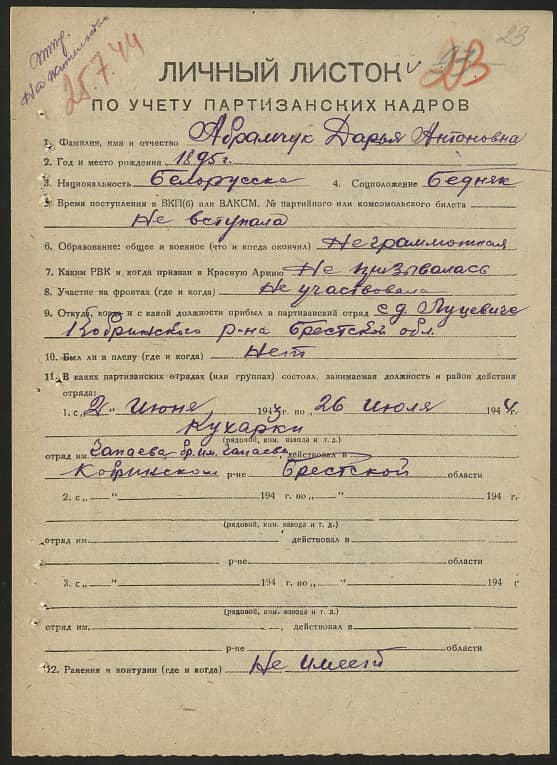 На жительство
25.7.44
23
23
ЛИЧНЫЙ ЛИСТОК
ПО УЧЕТУ ПАРТИЗАНСКИХ КАДРОВ
1. Фамилия, имя и отчество Абрамчук Дарья Антоновна
2. Год и место рождения 1895г.
3. Национальность Белорусска 4. Соцположение Бедняк
5. Время поступления в ВКП(б) или ВЛКСМ, № партийного или комсомольского билета
Не вступала
6. Образование: общее и военное (что и когда окончил) Неграммотная
7. Каким РВК и когда призван в Красную Армию Не призывалась
8. Участие на фронтах (где и когда) Не участвовала
9. Откуда, когда и с какой должности прибыл в партизанский отряд с д. Луцевичи
Кобринского р-на Брестской обл.
10. Был ли в плену (где и когда) Нет
11. В каких партизанских отрядах (или группах) состоял, занимаемая должность и район действия
отряда:
1. с „2" Июня 1943 г. по „26 Июля 1944 г.
Кухарки
(рядовой, ком. взвода и т. д.)
отряд им Чапаева бр. им. Чапаева, действовал в
Кобринском р-не Брестской области
2. с „ " 194 г. по „ " 194 г.
(рядовой, ком. взвода и т. д.)
отряд им. действовал в
р-не области
3. с „ " 194 г. по „ " 194 г.
(рядовой, ком. взвода и т. д.)
отряд им. , действовал в
р-не области
12. Ранения и контузии (где и когда) Не имеет